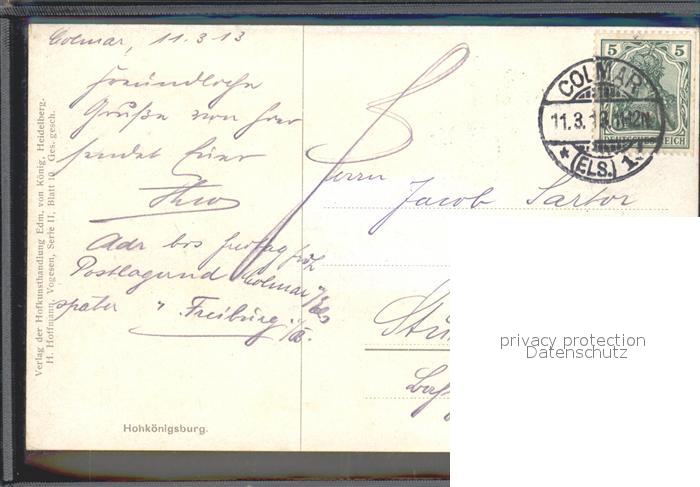 Colmar, 11.3.13
Freundliche
Grüße von hier
sendet Euer
Theo
Adr bis Freitag früh
Postlagernd Colmar i/Els
später " Freiburg i/B.
Verlag der Hofkunsthandlung Edm. von König, Heidelberg.
H. Hoffmann, Vogesen, Serie II, Blatt 10 Ges. gesch.
Hohkönigsburg.
5 5
DEUTSCHES REICH
COLMAR
11.3.13.
* (ELS.) 1.
Herrn Jacob Sartor
privacy protection
Datenschutz